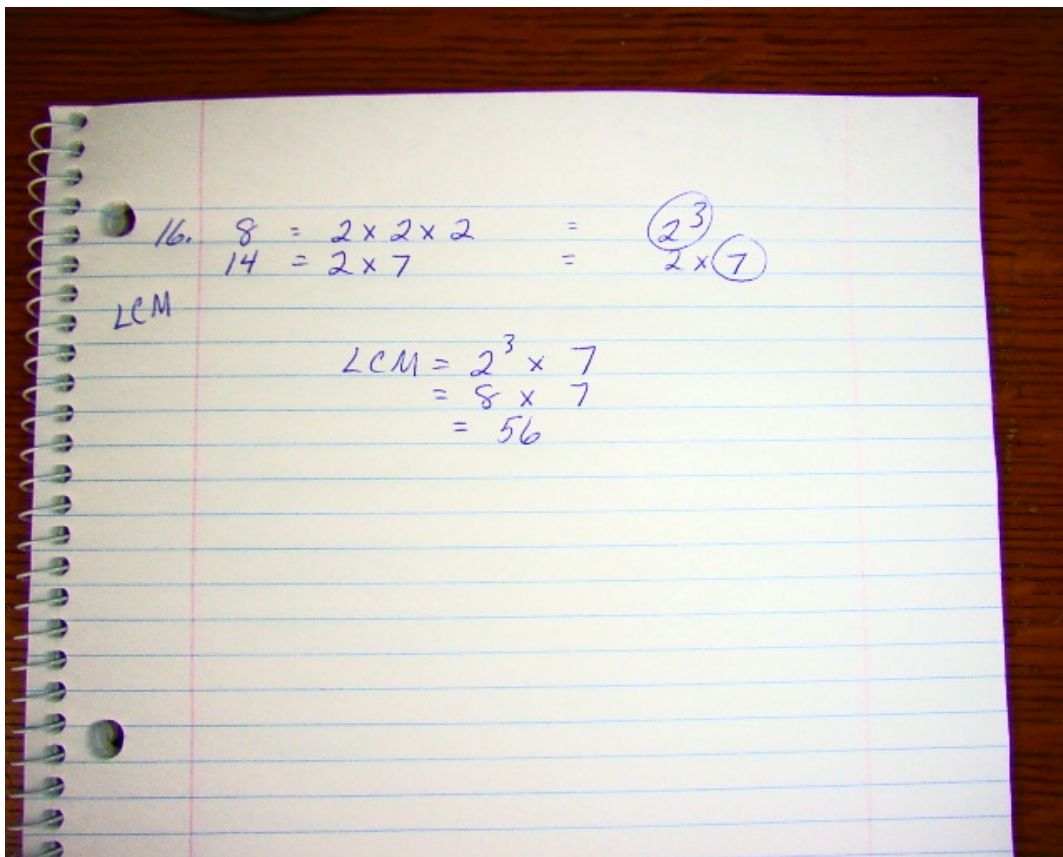 16. 8 = 2 x 2 x 2 = 2³
14 = 2 x 7 = 2 x 7
LCM
LCM = 2³ x 7
= 8 x 7
= 56